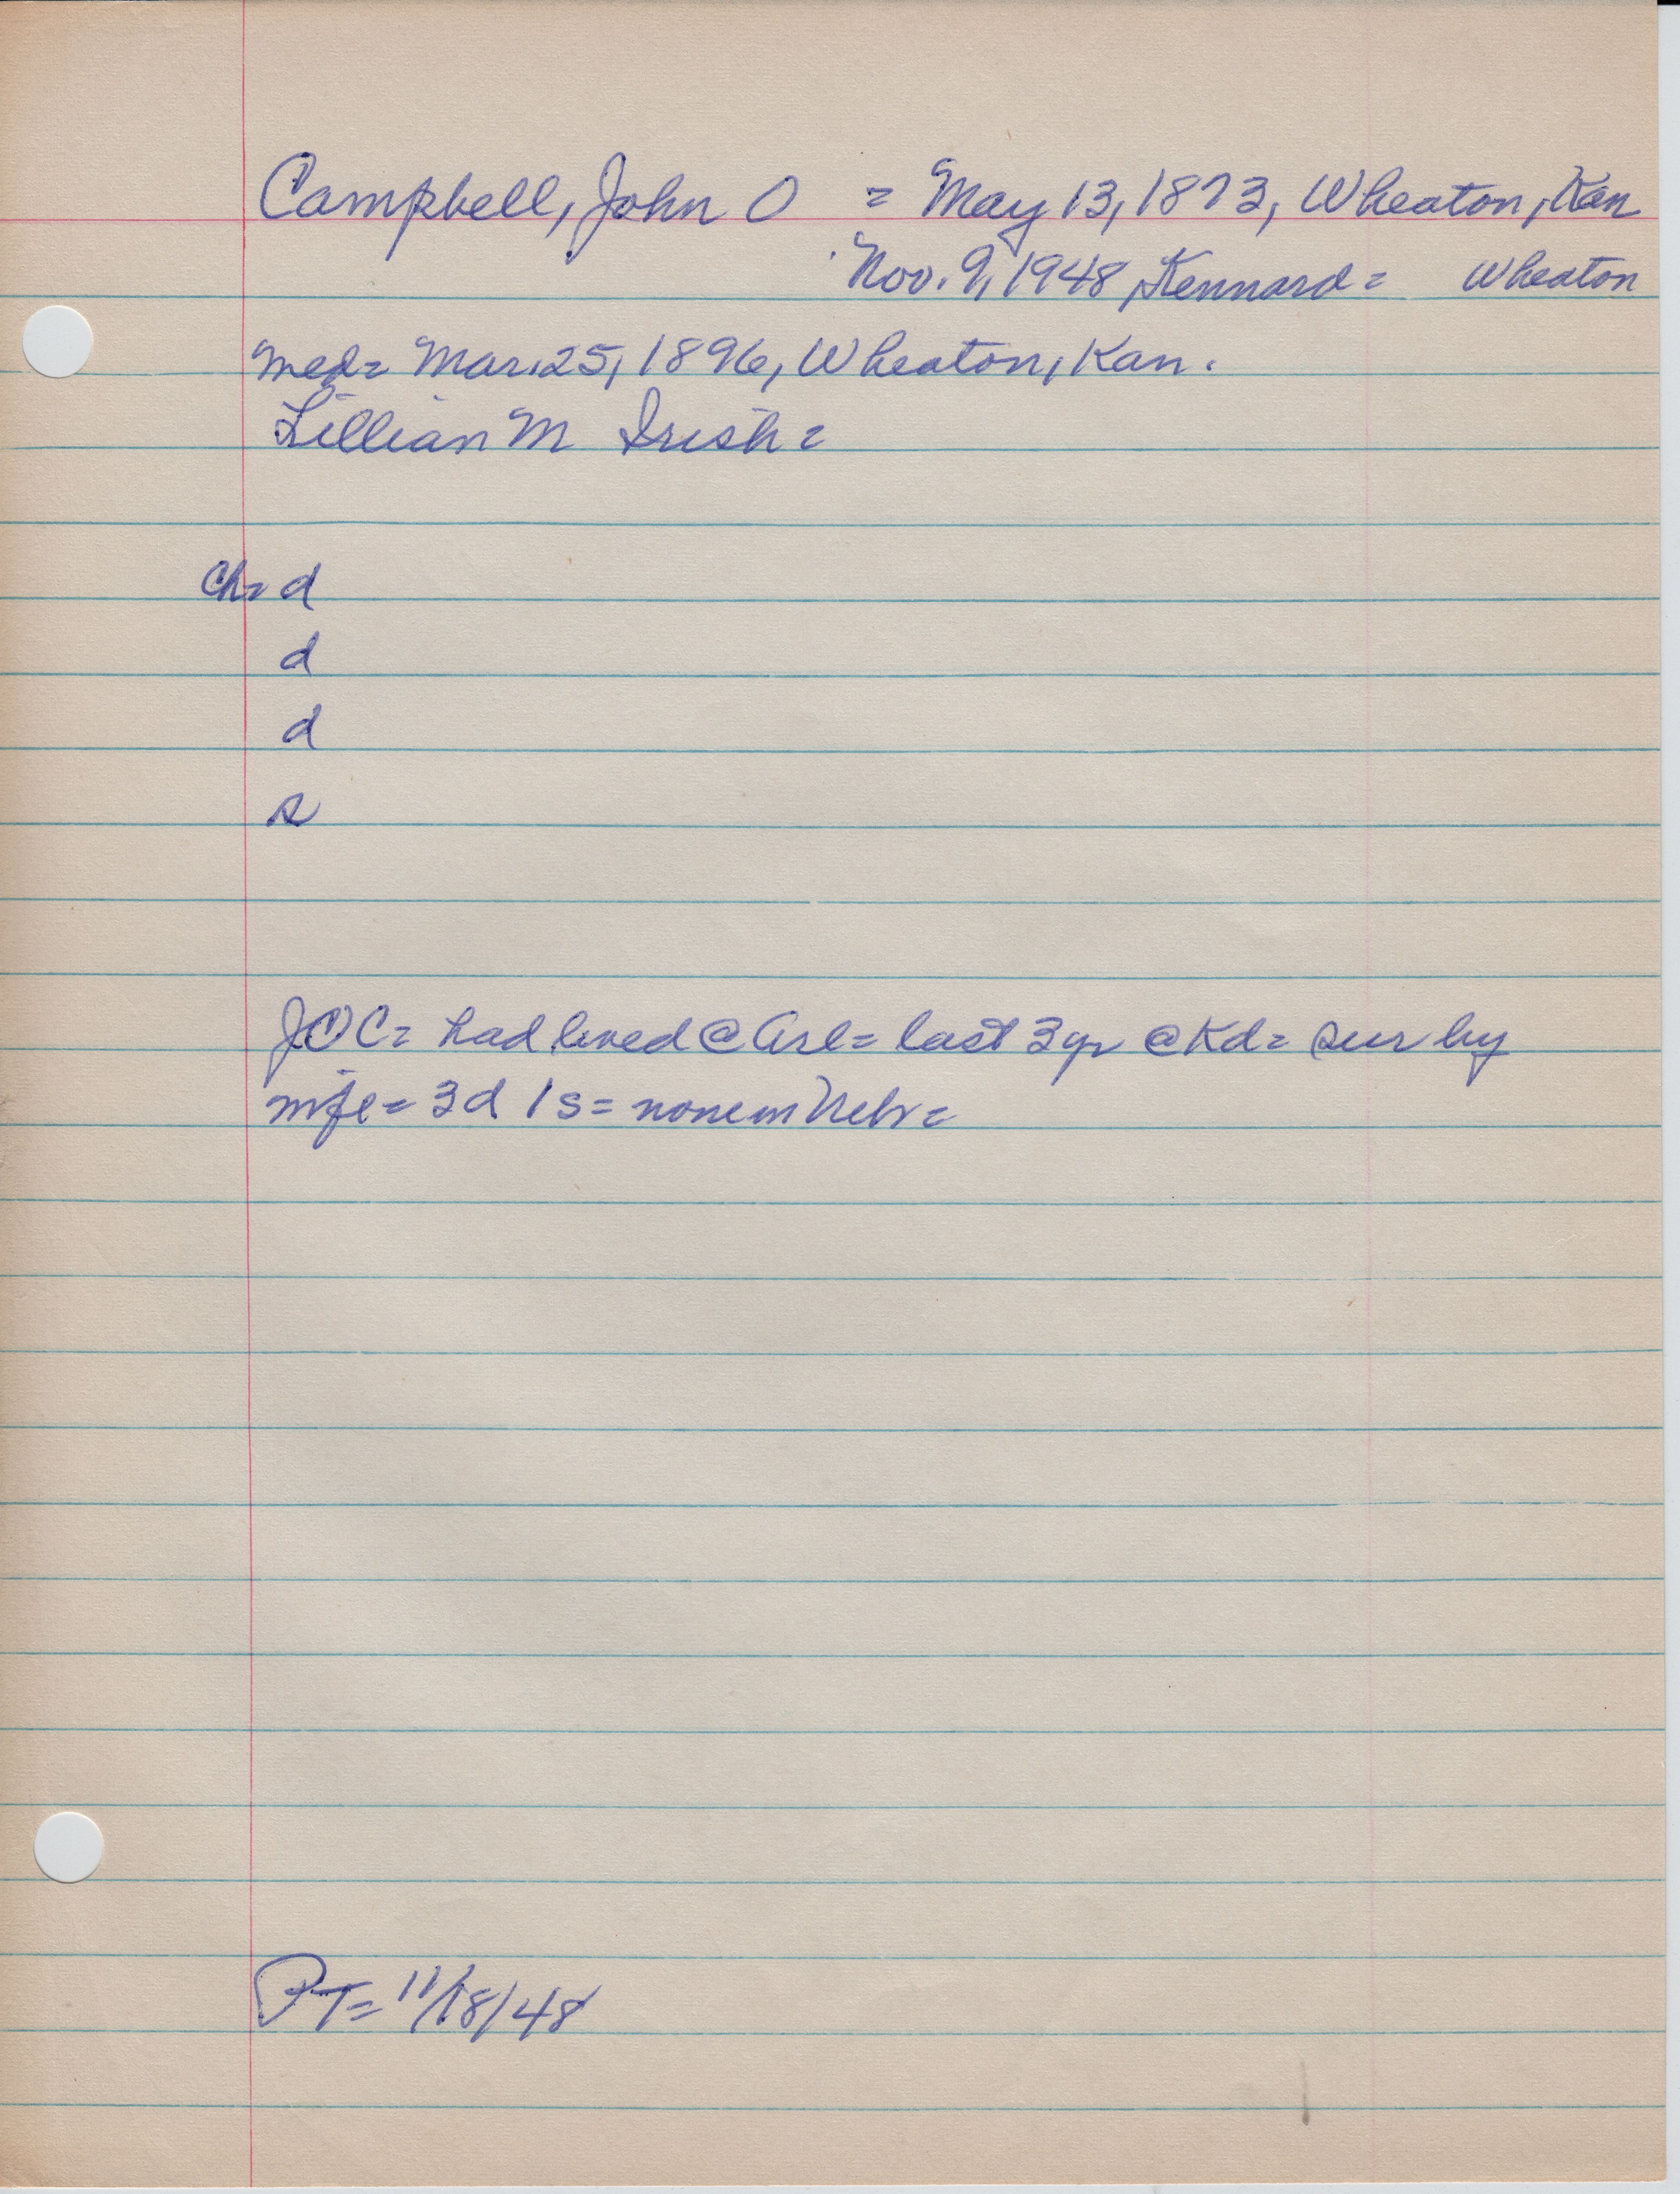 Campbell, John O = May 13, 1873, Wheaton, Kan
Nov. 9, 1948, Kennard = Wheaton
med= Mar. 25, 1896, Wheaton, Kan.
Lillian M Irish =
Ch= d
d
d
s
JOC= had lived @ Arl= last 3 yr @ Kd= sur by
wife= 3d 1s= none in Nebr=
PT= 11/18/48